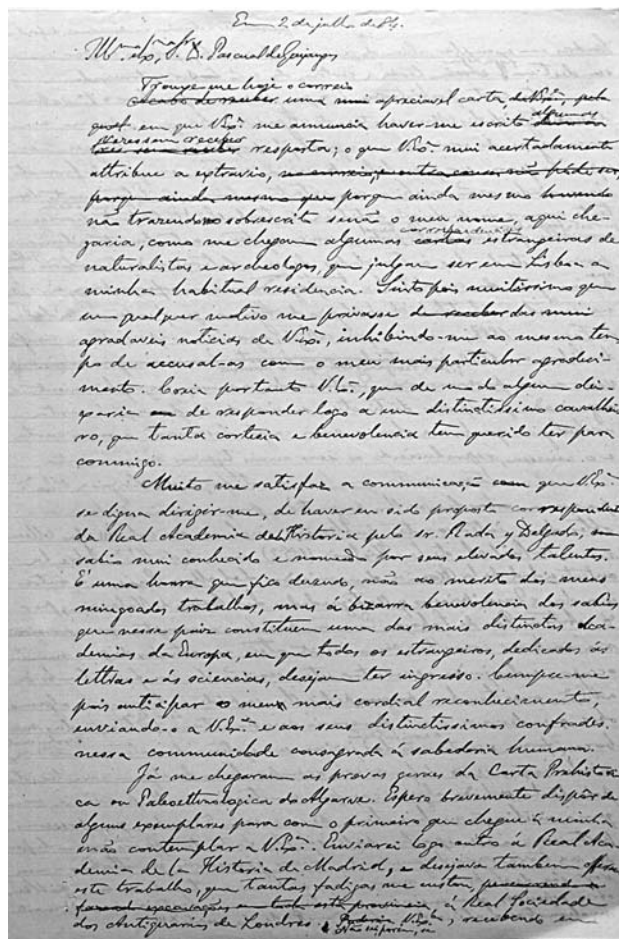 Em 2 de julho de 84.
Illmo e Exmo Snr. D. Pascual de Gayangos
Trouxe-me hoje o correio
Acabo de receber uma mui apreciavel carta de V.Exa, pela
qual em que V.Exa me annuncia haver-me escrito algumas
resposta; o que V.Exa mui acertadamente
attribue a extravio, não póde ser,
porque ainda mesmo que porque ainda mesmo havendo
não trazendo no sobrescrito senão o meu nome, aqui che-
garia, como me chegam algumas cartas correspondencias estrangeiras de
naturalistas e archeologos, que julgam ser em Lisboa a
minha habitual residencia. Sinto pois muitissimo que
um qualquer motivo me privasse de receber das mui
agradaveis noticias de V.Exa, inhibindo-me ao mesmo tem-
po de accusal-as com o meu mais particular agradeci-
mento. Creia portanto V.Exa, que de modo algum dei-
xaria de responder logo a um distinctissimo cavalhei-
ro, que tanta cortezia e benevolencia tem querido ter para
commigo.
Muito me satisfaz a communicação com que V.Exa
se digna dirigir-me, de haver eu sido proposto correspondente
da Real Academia de la Historia pelo sr. Rada y Delgado, um
sabio mui conhecido e nomeado por seus elevados talentos.
É uma honra que fico devendo, não ao merito dos meus
mingoados trabalhos, mas á bizarra benevolencia dos sabios
que nesse paiz constituem uma das mais distinctas Aca-
demias da Europa, em que todos os estrangeiros, dedicados ás
lettras e ás sciencias, desejam ter ingresso. Cumpre-me
pois anticipar o meu mais cordial reconhecimento,
enviando-o a V.Exa e aos seus distinctissimos confrades
nessa communidade consagrada á sabedoria humana.
Já me chegaram as provas geraes da Carta Prehistori-
ca ou Paleoethnologica do Algarve. Espero brevemente dispôr de
alguns exemplares para com o primeiro que chegue á minha
mão contemplar a V.Exa. Enviarei logo outro á Real Aca-
demia de la Historia de Madrid, e desejava tambem offerecer
este trabalho, que tantas fadigas me custou,
excavações em toda esta provincia, á Real Sociedade
dos Antiquarios de Londres. Poderia V.Exa, recebendo em
Não sei, porém, se